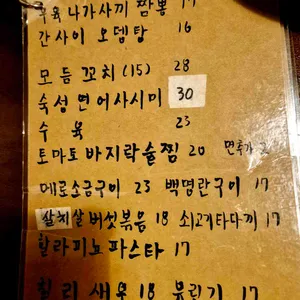 수육 나가사끼 짬뽕 17
간사이 오뎅탕 16
모듬 꼬치 (15) 28
숙성 연어사시미 30
수육 23
토마토 바지락술찜 20 면추가
메로소금구이 23 백명란구이 17
살치살버섯볶음 18 쇠고기타다끼 17
할라피뇨 파스타 17
새우 18 17